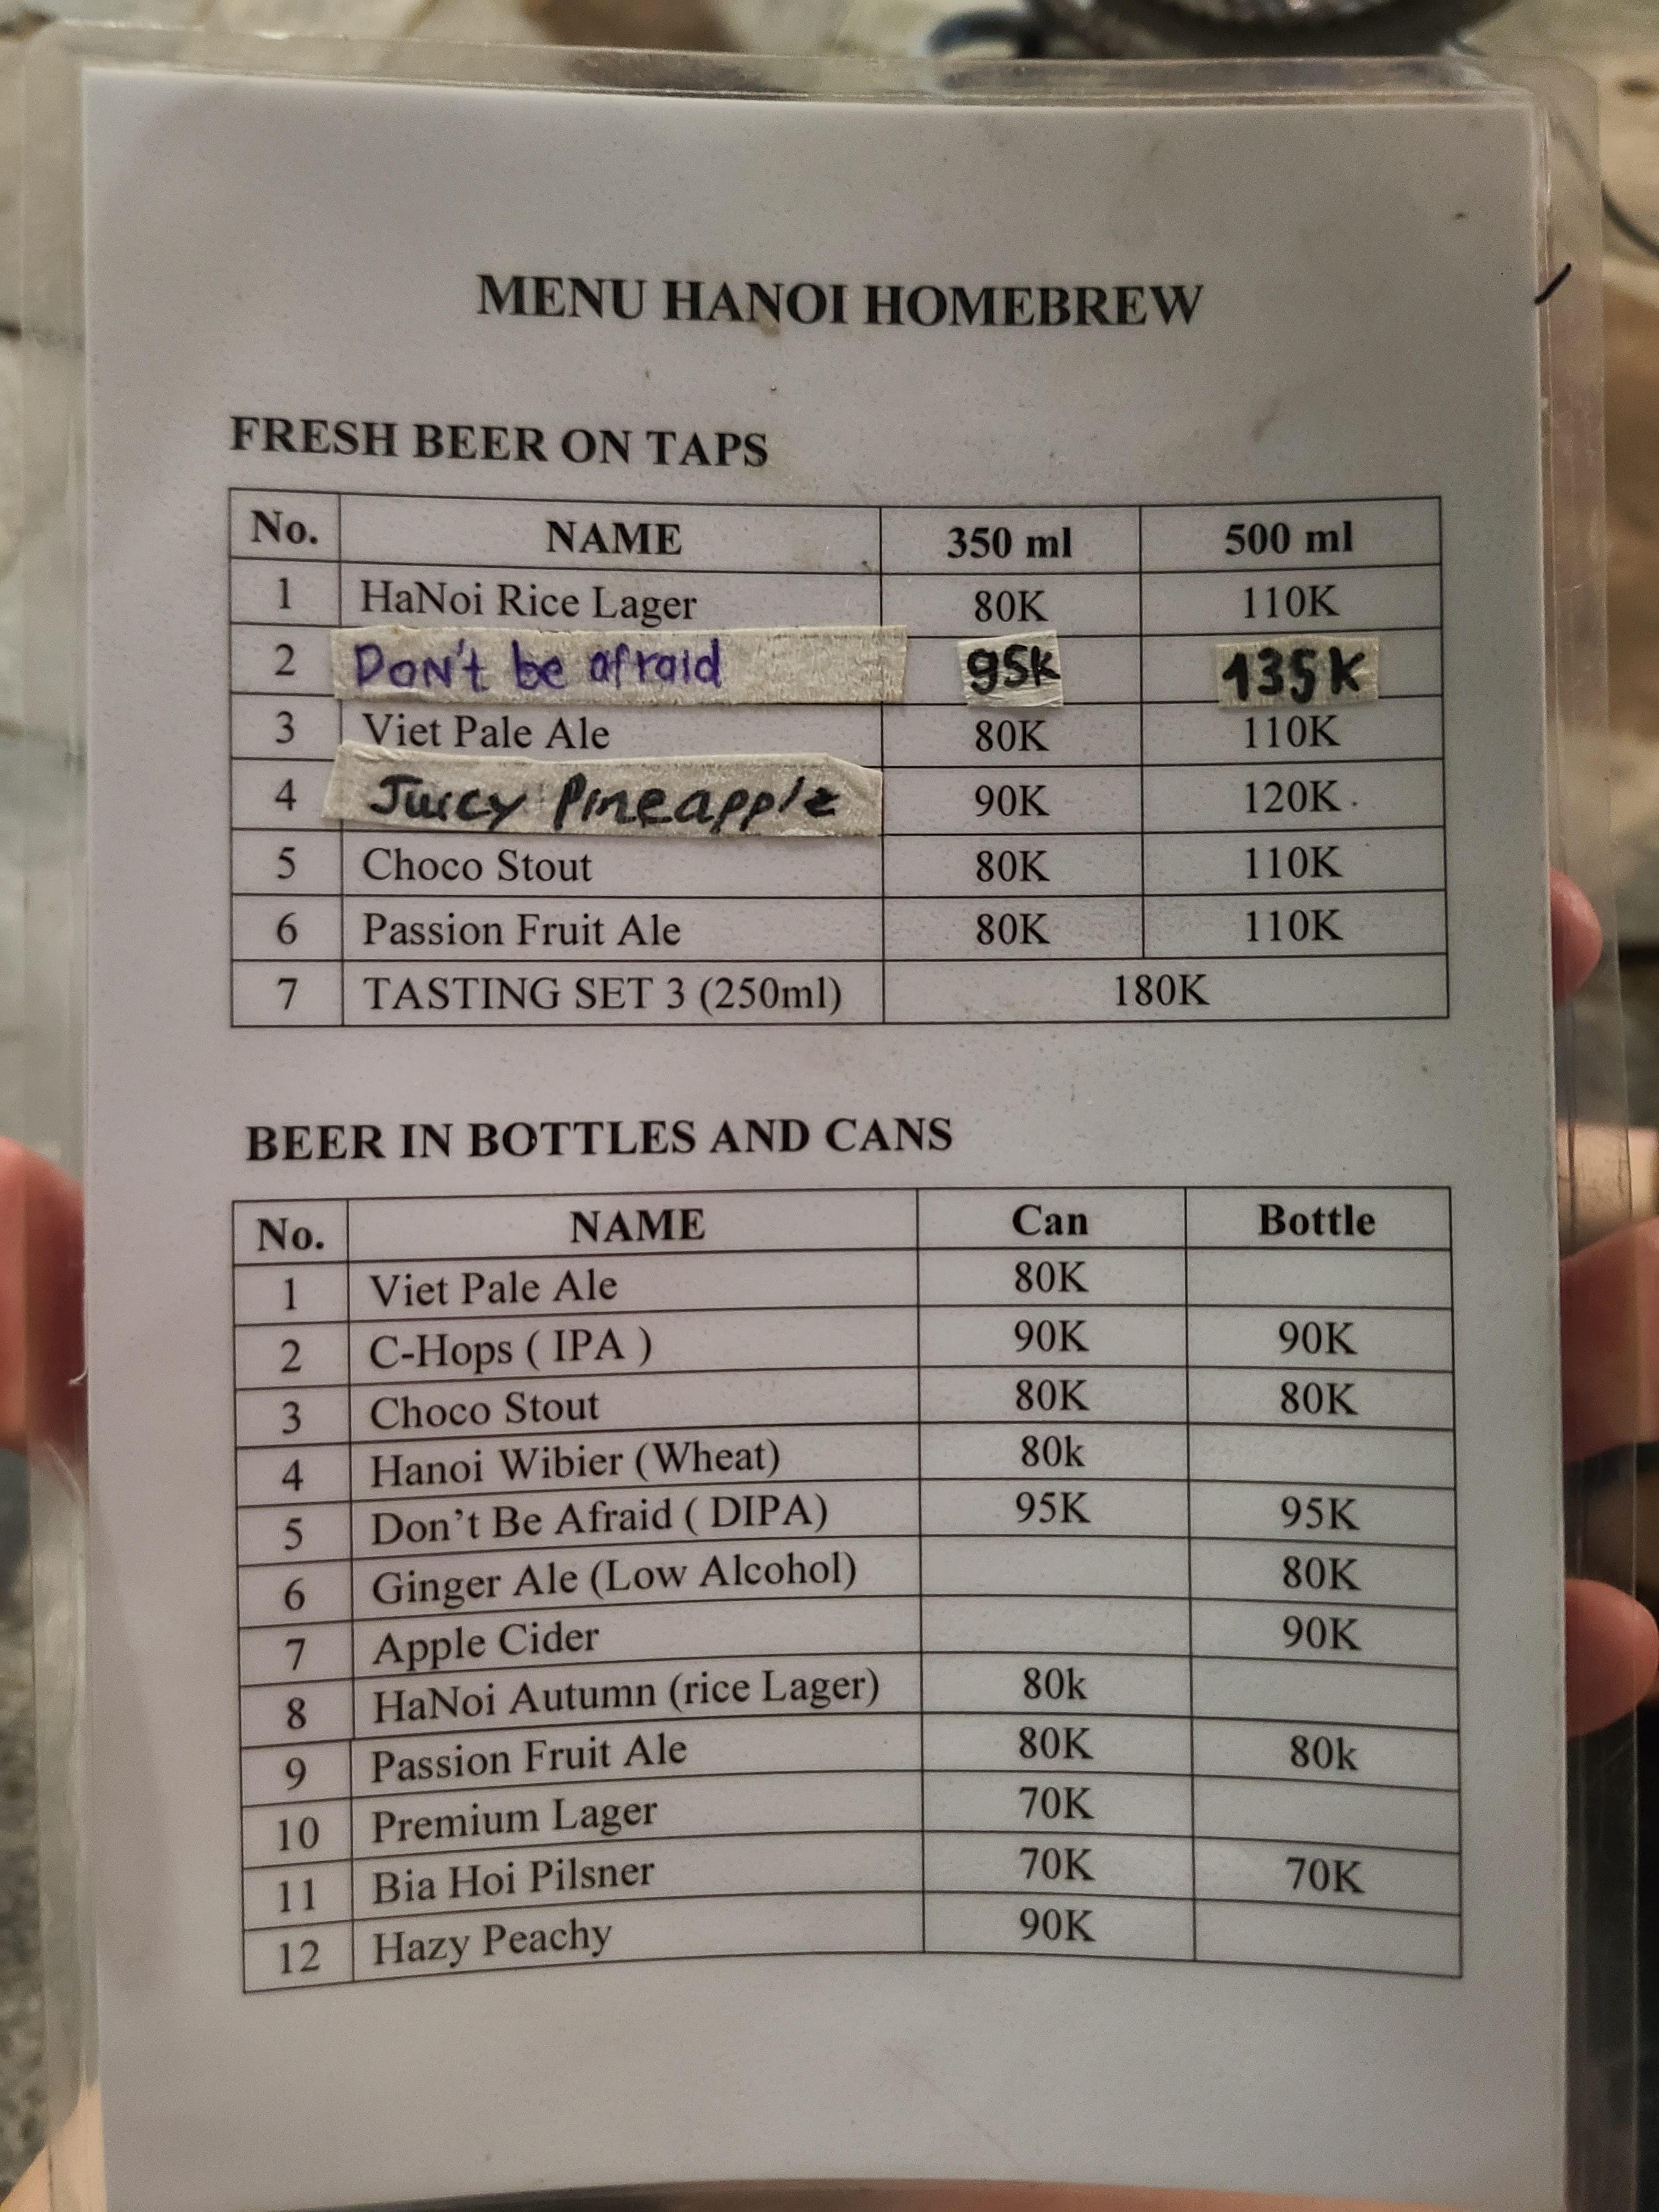 MENU HANOI HOMEBREW
FRESH BEER ON TAPS
No. NAME 350 ml 500 ml
1 HaNoi Rice Lager 80K 110K
2 Don't be afraid 95K 135K
3 Viet Pale Ale 80K 110K
4 Juicy Pineapple 90K 120K
5 Choco Stout 80K 110K
6 Passion Fruit Ale 80K 110K
7 TASTING SET 3 (250ml) 180K
BEER IN BOTTLES AND CANS
No. NAME Can Bottle
1 Viet Pale Ale 80K
2 C-Hops ( IPA ) 90K 90K
3 Choco Stout 80K 80K
4 Hanoi Wibier (Wheat) 80k
5 Don’t Be Afraid ( DIPA) 95K 95K
6 Ginger Ale (Low Alcohol) 80K
7 Apple Cider 90K
8 HaNoi Autumn (rice Lager) 80k
9 Passion Fruit Ale 80K 80k
10 Premium Lager 70K
11 Bia Hoi Pilsner 70K 70K
12 Hazy Peachy 90K